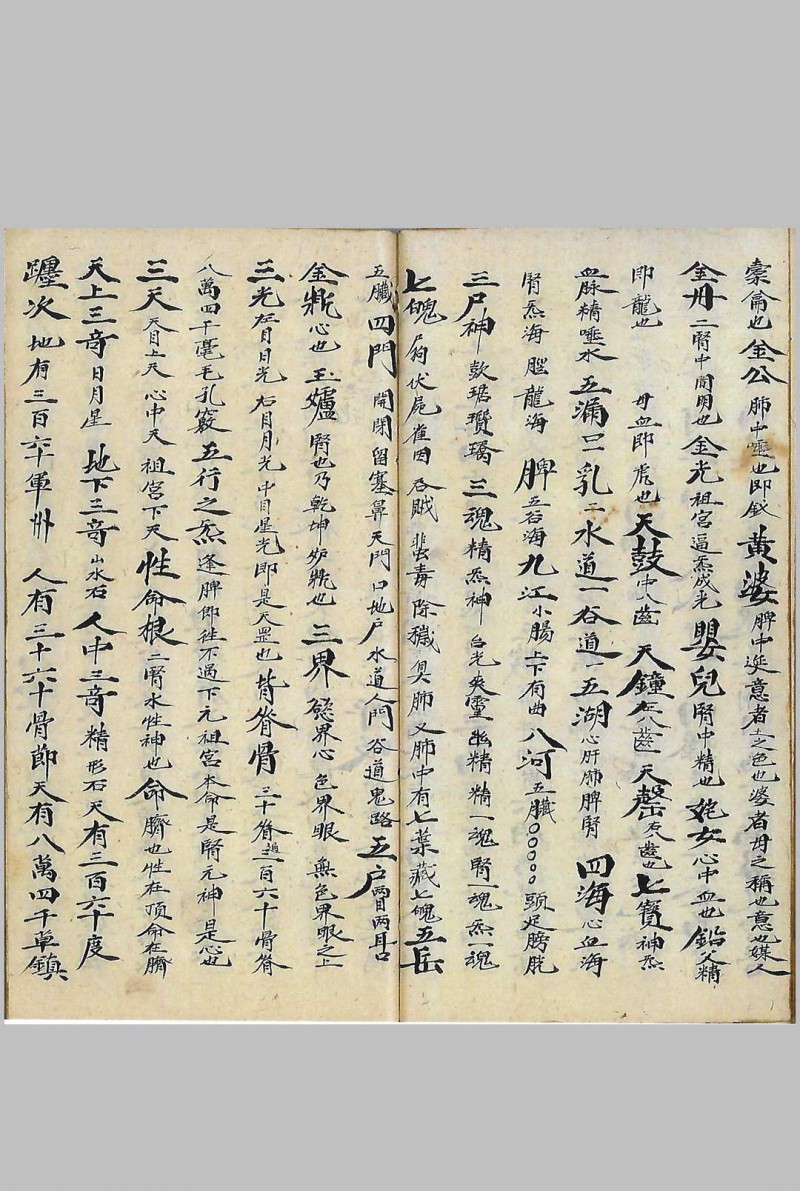 橐籥也 金公 肺中唾也即鈛 黄婆 脾中涎意者土之色也婆者母之稱也意也媒人
金丹 二腎中間明也 金光 祖宮逼炁成光 嬰兒 腎中精也 姹女 心中血也 鉛 父精
即龍也 母血即虎也 天鼓 中八齒 天鐘 左八齒 天磬 右八齒也 七寶 神炁
血脉精唾水 五漏 口一乳二水道一谷道一 五湖 心肝肺脾腎 四海 心血海
腎炁海 胵龍海 脾 五谷海 九江 小腸上下有曲 八河 五臟○○○○○ 頭足膀胱
三尸神 彭琚瓚璚 三魂 精炁神 台光爽靈幽精 精一魂 腎一魂 炁一魂
七魄 屙伏屍雀因吞賊蜚毒除穢臭肺 又肺中有七葉藏七魄 五岳
五臟 四門 開閉留塞鼻天門口地戶水道人門谷道鬼路 五户 兩目兩耳口
金鼎 心也 玉爐 腎也乃乾坤炉鼎也 三界 慾界心 色界眼 無色界眼之上
三光 左目日光 右目月光 中目星光即是天罡也 背脊骨 三十脊通三百六十骨脊
八萬四千毫毛孔竅 五行之炁 逢脾即徃不過下元祖宮本命是腎元神是心也
三天 天目上天 心中天 祖宮下天 性命根 二腎水性神也 命 臍也性在頂命在臍
天上三竒 日月星 地下三竒 山水石 人中三竒 精形石 天有三百六十度
躔次 地有三百六十軍州 人有三十六十骨節 天有八萬四千草鎮